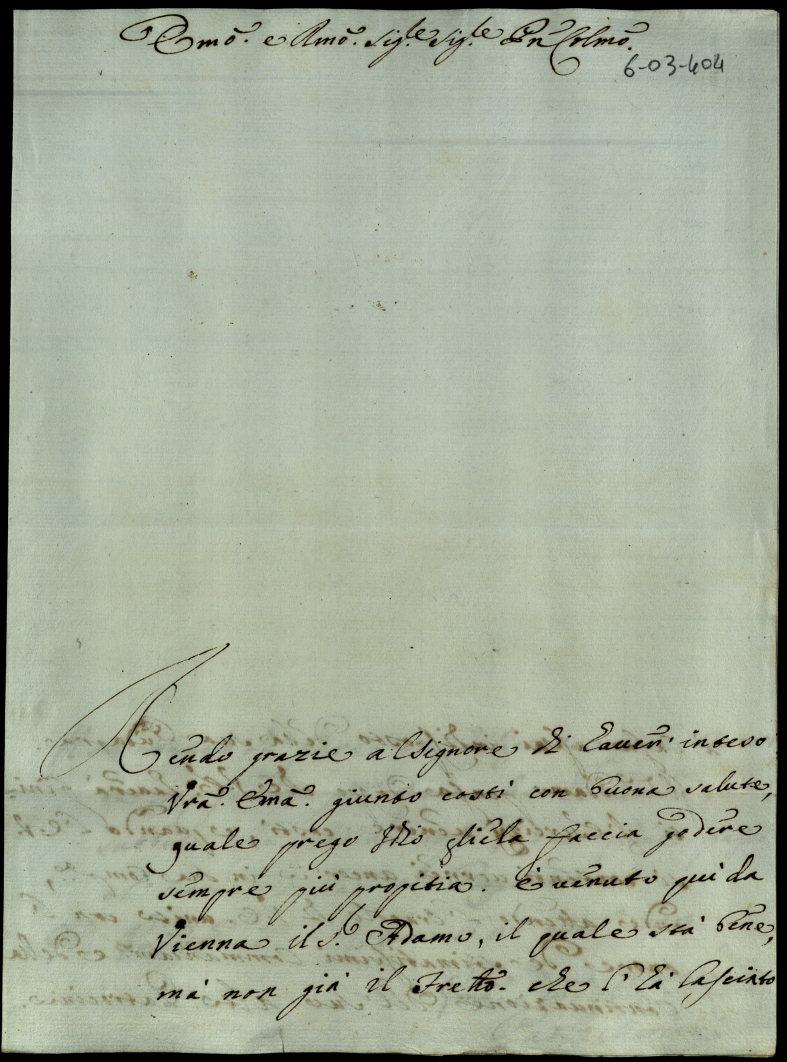 Emo. e Rmo. Sig.re Sig.re Pn Colmo.
6-03-404
Rendo grazie al Signore di haver inteso
Vra. Ema. giunto costì con buona salute,
quale prego Iddio gliela faccia godere
sempre più propitia. è venuto qui da
Vienna il S.r Adamo, il quale stà bene,
mà non già il che l'hà lasciato